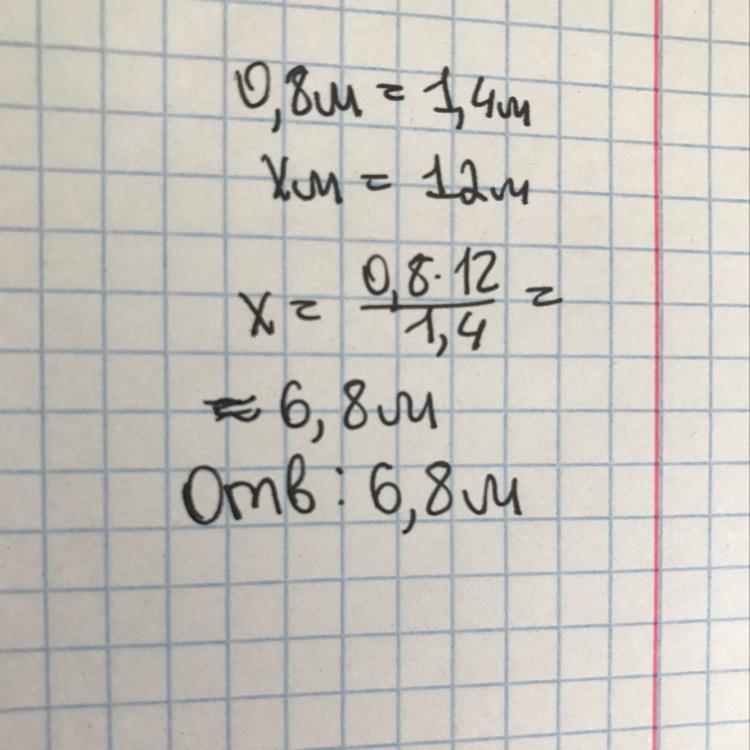 0,8м = 1,4м
хм = 12м
х = 0,8·12 / 1,4 =
≈ 6,8м
Отв: 6,8м